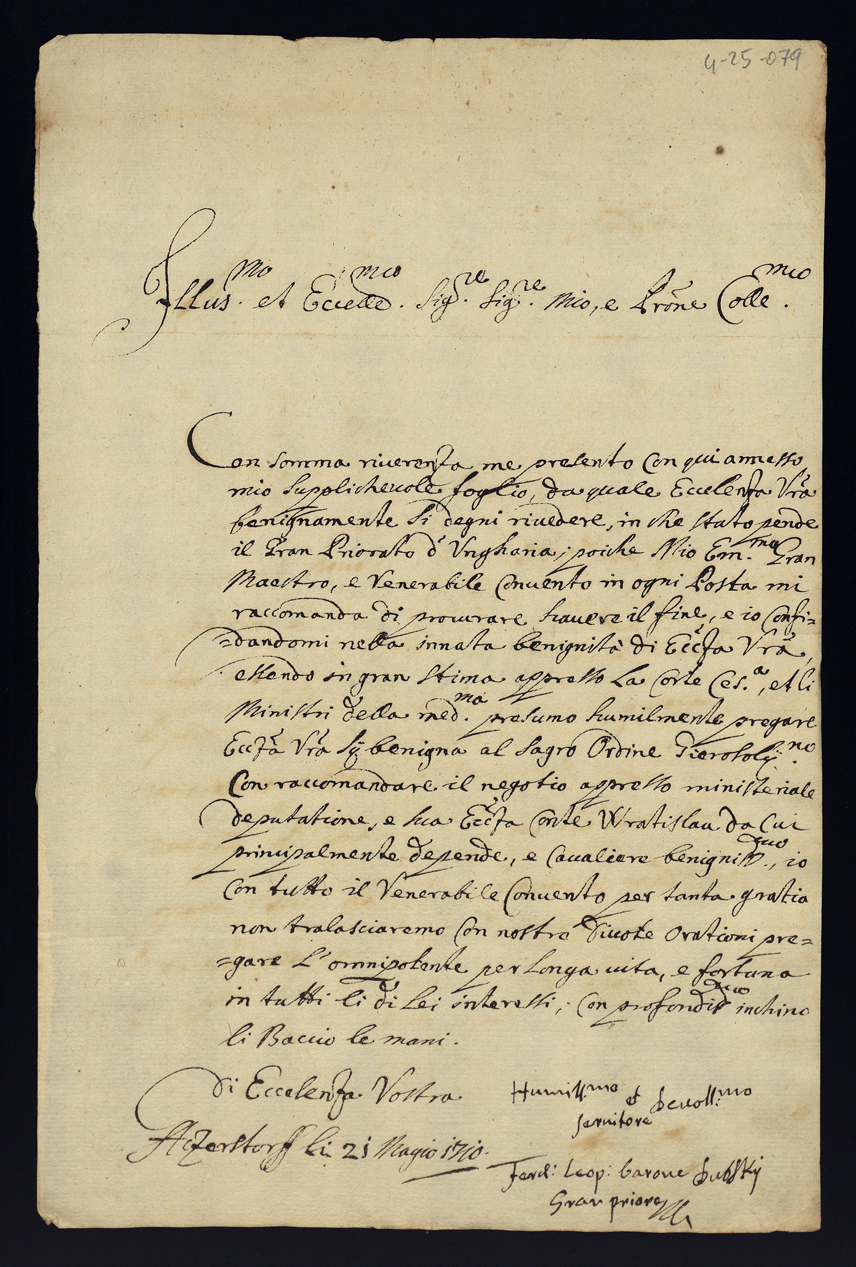 4-25-079
Illus.mo et Eccell.mo Sig.re Sig.re Mio, e Prõne Colle.mo
Con somma riverenza me presento con qui annesso
mio supplichevole foglio, da quale Eccelenza Vrã
benignamente si degni rivedere, in che stato pende
il Gran Priorato d' Ungharia; poiche Mio Em.mo Gran
Maestro, e Venerabile Convento in ogni Posta mi
raccomanda di procurare havere il fine, e io confi=
=dandomi nella innata benignità di Eccza Vrã,
essendo in gran stima appresso la Corte Ces.a, et li
Ministri della med.ma presumo humilmente pregare
Eccza Vrã sÿ benigna al sagro Ordine Gierosoly.no
con raccomandare il negotio appresso ministeriale
deputatione, e sua Eccza Conte Wratislau da cui
principalmente depende, e cavaliere benigniss.mo, io
con tutto il Venerabile Convento per tanta gratia
non tralasciaremo con nostre divote orationi pre=
=gare L'omnipotente per longa vita, e fortuna
in tutti li di Lei interessi, con profondiss.mo inchino
li Baccio le mani.
di Eccelenza Vostra
Humill:mo et Devott:mo
servitore
li 21 Magio 1710.
Ferd: Leop: barone Dubsky
Gran priore